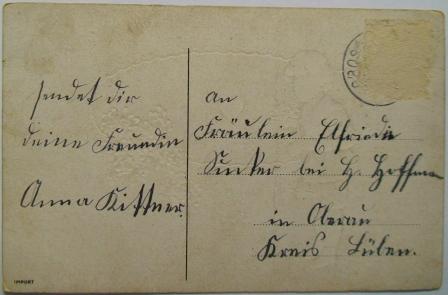 sendet dir
deine Freundin
Anna Kittner.
An
Fräulein Elfriede
bei H. Hoffmann
in Oberau
Kreis Lüben.
IMPORT